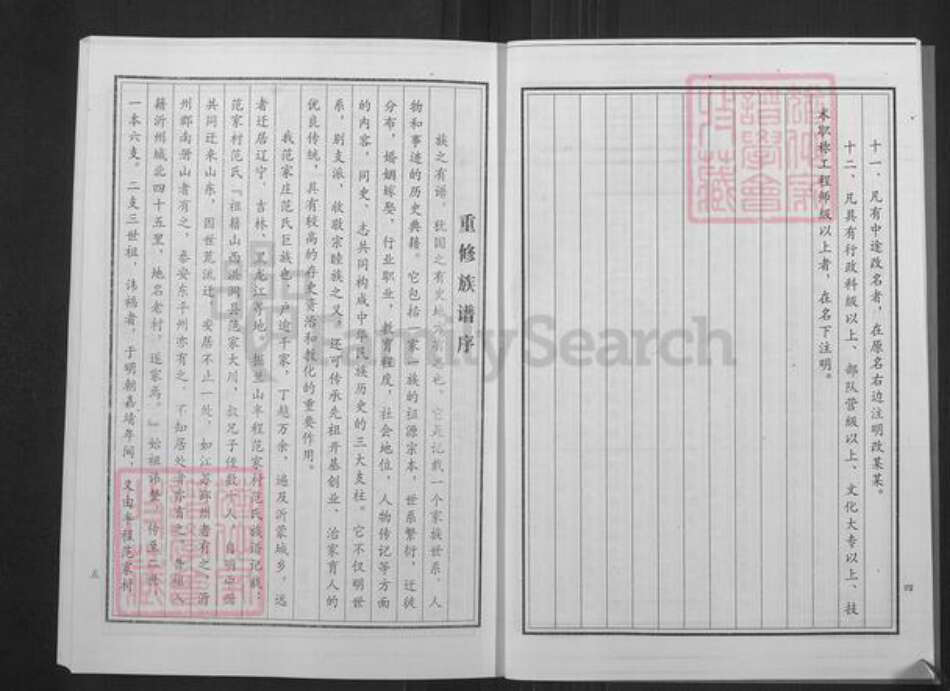 十一、凡有中途改名者，在原名右边注明改某某。
十二、凡具有行政科级以上、部队营级以上、文化大专以上、技
术职称工程师级以上者，在名下注明。
四
重修族谱序
族之有谱，犹国之有史地方有志也。它是记载一个家族世系、人
物和事迹的历史典籍。它包括一家一族的祖源宗本，世系繁衍，迁徙
分布，婚姻嫁娶，行业职业，教育程度，社会地位，人物传记等方面
的内容，同史、志共同构成中华民族历史的三大支柱。它不仅明世
系，别支派，收敬宗睦族之义。还可传承先祖开基创业、治家育人的
优良传统，具有较高的存史资治和教化的重要作用。
我范家庄范氏巨族也，户逾千家，丁越万余，遍及沂蒙城乡，远
者迁居辽宁、吉林、黑龙江等地。据兰山半程范家村范氏族谱记载：
范家村范氏『祖籍山西洪洞县范家大川，叔兄子侄数十人，自明
共同迁来山东，因世荒流迁，安居不止一处，如江苏邳州者有之，沂
州郡南册山者有之，泰安东平州亦有之，不知居处者亦有之。
籍沂州城北四十五里，地名老村，遂家焉。』始祖讳整，传至二世
一本六支。二支三世祖，讳福者，于明朝嘉靖年间，又由半程范家村
五
FamilySearch